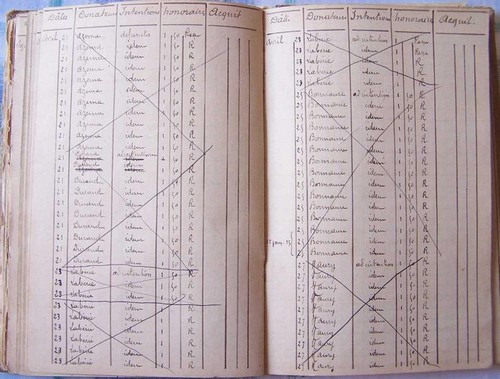 Date Donateurs Intentions honoraires Acquit
Avril 21 Azema defunts 1 50
21 Azema idem 1 50 R
21 Azema idem 1 50 R
21 Azema idem 1 50 R
21 Azema idem 1 50 R
21 Azema idem 1 50 R
21 Azema idem 1 50 R
21 Azema idem 1 50 R
21 Azema idem 1 50 R
21 Azema idem 1 50 R
21 Azema idem 1 50 R
21 Durand ad intentionem 1 50 R
21 Durand idem 1 50 R
21 Durand idem 1 50 R
21 Durand idem 1 50 R
21 Durand idem 1 50 R
21 Durand idem 1 50 R
21 Durand idem 1 50 R
21 Durand idem 1 50 R
21 Durand idem 1 50 R
21 Durand idem 1 50 R
23 Laborie ad intention 1 50 R
23 Laborie idem 1 50 R
23 Laborie idem 1 50 R
23 Laborie idem 1 50 R
23 Laborie idem 1 50 R
23 Laborie idem 1 50 R
23 Laborie idem 1 50 R
23 Laborie idem 1 50 R
23 Laborie idem 1 50 R
Date Donateurs Intentions honoraires Acquit
Avril 23 Laborie ad intention 1 50
23 Laborie idem 1 50 R
23 Laborie idem 1 50 R
23 Laborie idem 1 50 R
23 Laborie idem 1 50 R
25 Bonnaure ad intention 1 50 R
25 Bonnaure idem 1 50 R
25 Bonnaure idem 1 50 R
25 Bonnaure idem 1 50 R
25 Bonnaure idem 1 50 R
25 Bonnaure idem 1 50 R
25 Bonnaure idem 1 50 R
25 Bonnaure idem 1 50 R
25 Bonnaure idem 1 50 R
25 Bonnaure idem 1 50 R
25 Bonnaure idem 1 50 R
25 Bonnaure idem 1 50 R
25 Bonnaure idem 1 50 R
25 Bonnaure idem 1 50 R
25 Bonnaure idem 1 50 R
27 Faury ad intention 1 50 R
27 Faury idem 1 50 R
27 Faury idem 1 50 R
27 Faury idem 1 50 R
27 Faury idem 1 50 R
27 Faury idem 1 50 R
27 Faury idem 1 50 R
27 Faury idem 1 50 R
27 Faury idem 1 50 R
27 Faury idem 1 50 R